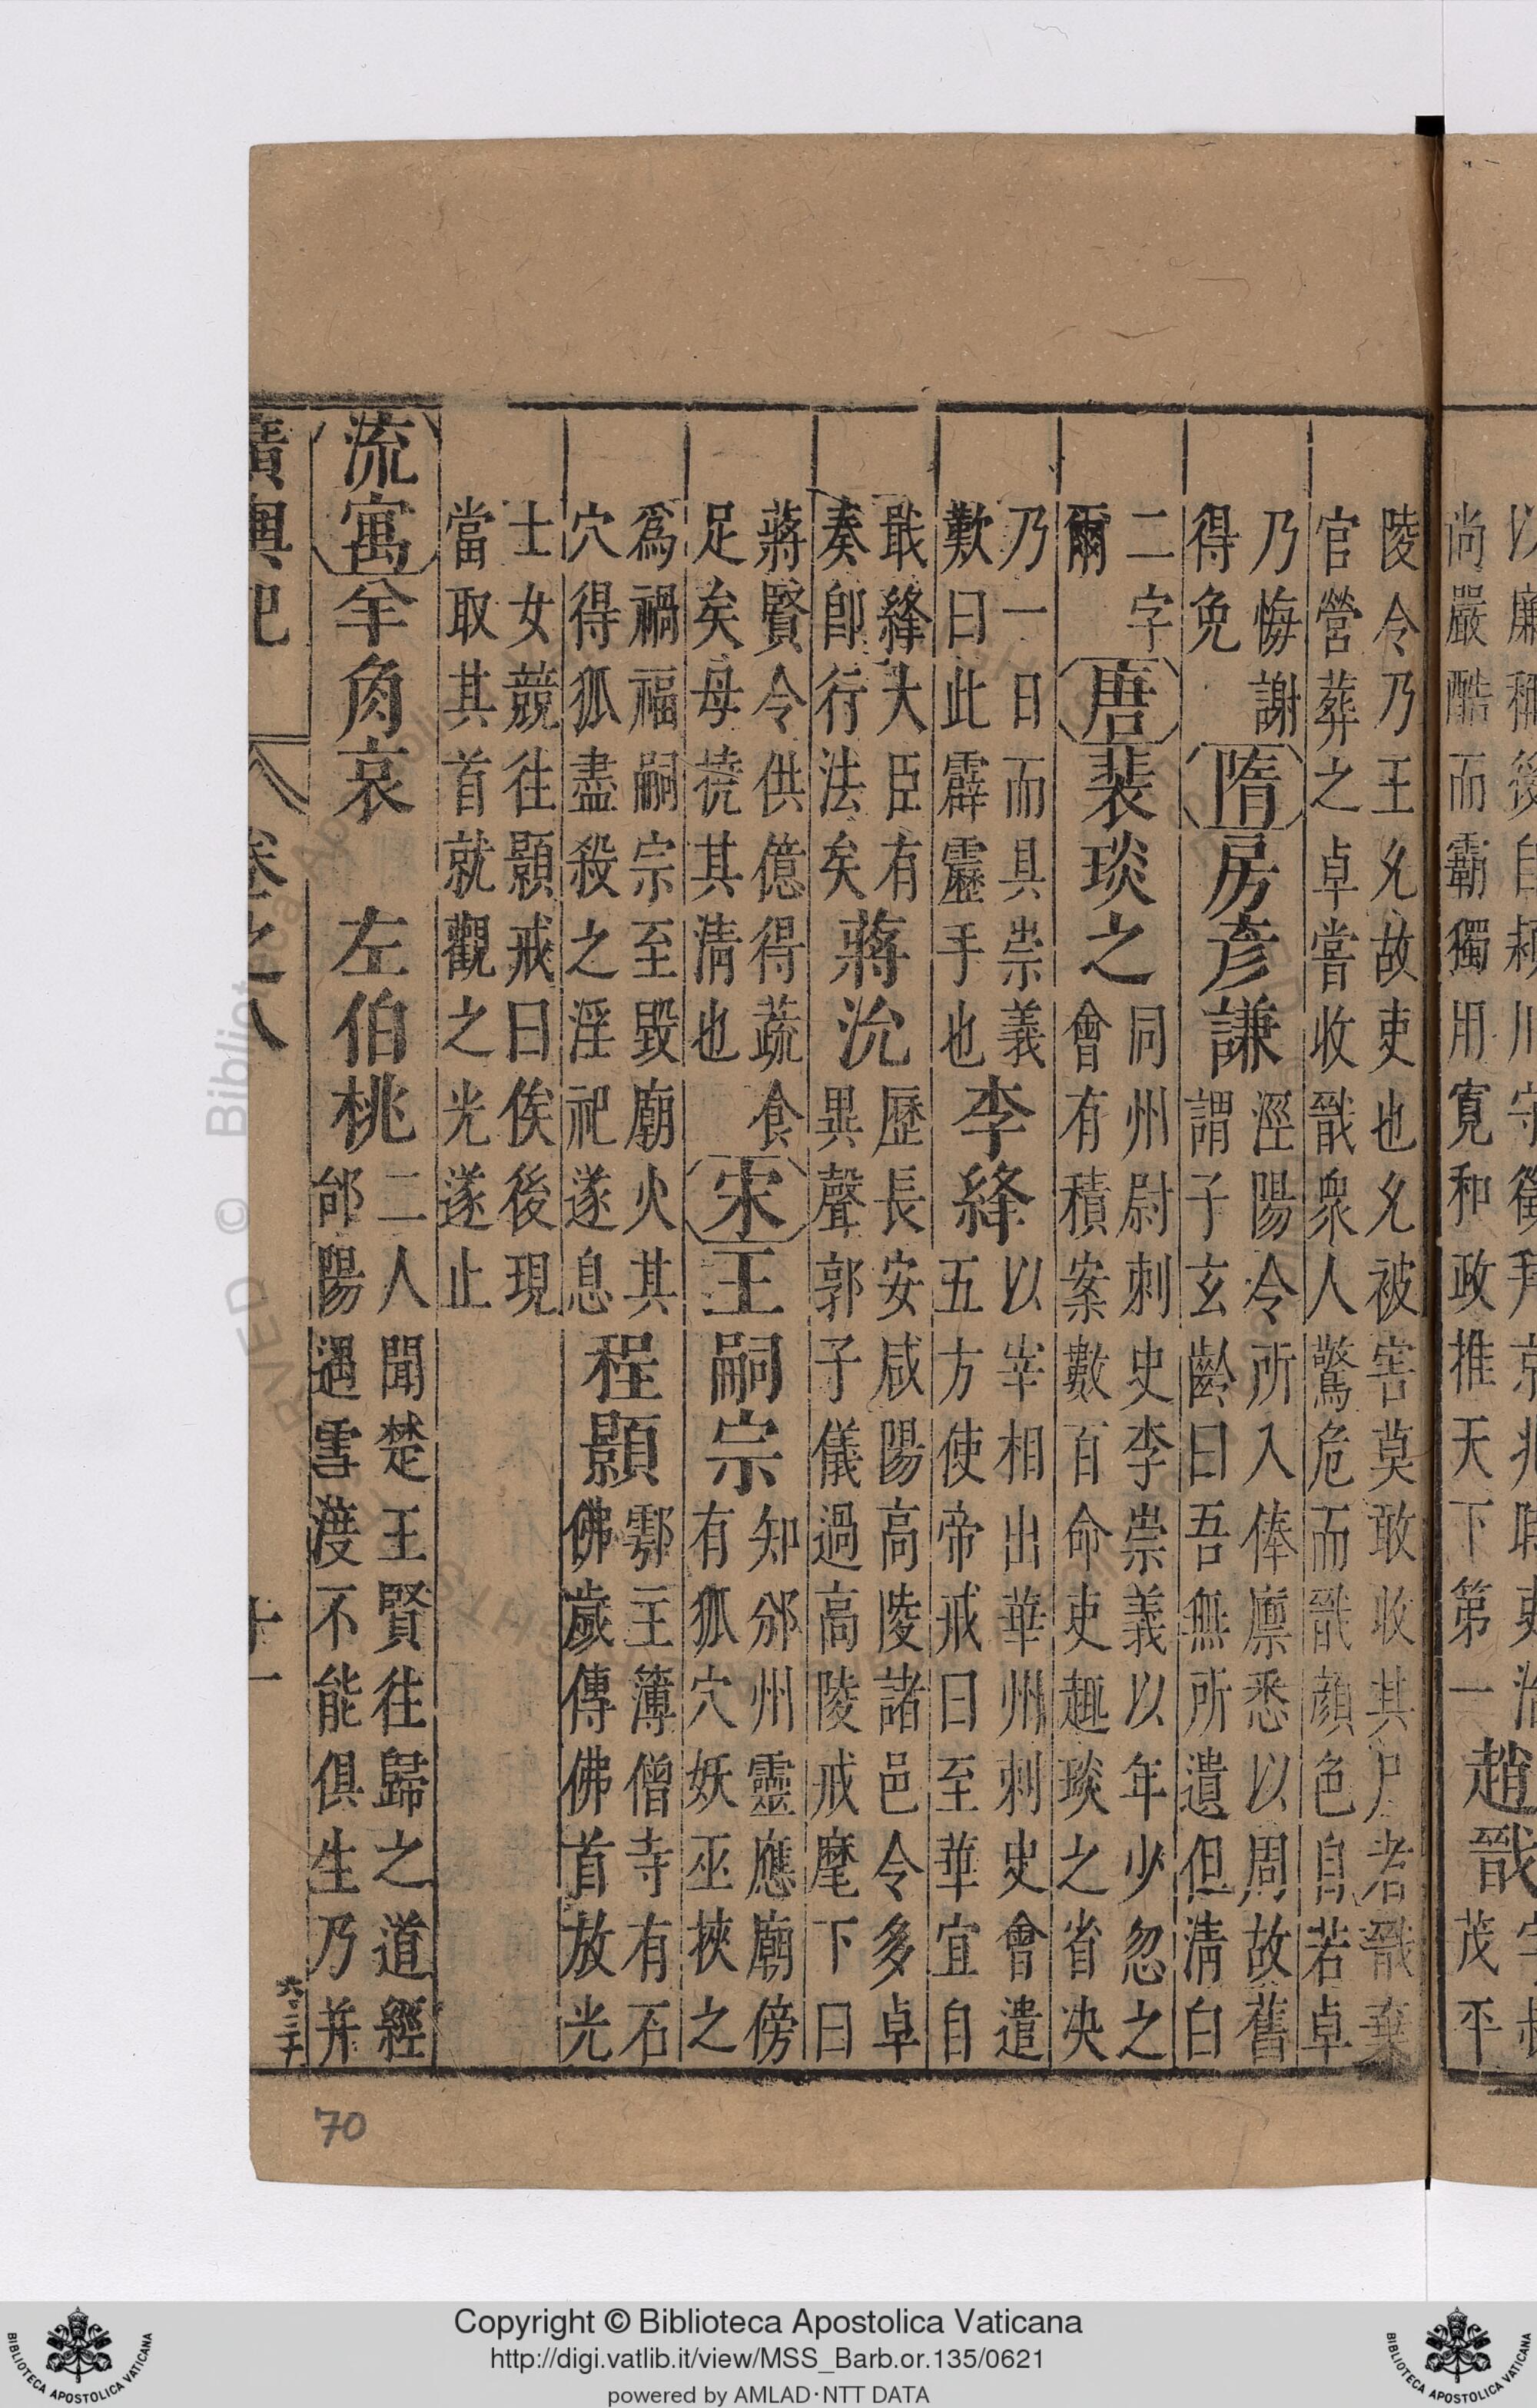 尚嚴酷而霸獨用寬和政推天下第一
趙戩
茂平
陵令乃王允故吏也允被害莫敢收其尸者戩棄
官營葬之卓嘗收戩衆人驚危而戩顏色自若卓
乃悔謝
得免
隋
房彥謙
涇陽令所入俸廩悉以周故舊
謂子玄齡曰吾無所遺但清白
二字
爾
唐
裴琰之
同州尉刺史李崇義以年少忽之
會有積案數百命吏趣琰之省决
乃一日而具崇義
歎曰此霹靂手也
李絳
以宰相出華州刺史會遣
五方使帝戒曰至華宜自
戢絳大臣有
奏即行法矣
蔣沇
歷長安咸陽高陵諸邑令多卓
異聲郭子儀過高陵戒麾下曰
蔣賢令供億得蔬食
足矣母撓其清也
宋
王嗣宗
知邠州靈應廟傍
有狐穴妖巫挾之
爲禍福嗣宗至毀廟火其
穴得狐盡殺之淫祀遂息
程顥
鄠主簿僧寺有石
佛歲傳佛首放光
士女競往顥戒曰俟後現
當取其首就觀之光遂止
流寓
羊角哀 左伯桃
二人聞楚王賢往歸之道經
郃陽遇雪度不能俱生乃并
廣輿記 卷之八 十一
70
Copyright © Biblioteca Apostolica Vaticana
http://digi.vatlib.it/view/MSS_Barb.or.135/0621
powered by AMLAD·NTT DATA
BIBLIOTECA APOSTOLICA VATICANA
BIBLIOTECA APOSTOLICA VATICANA